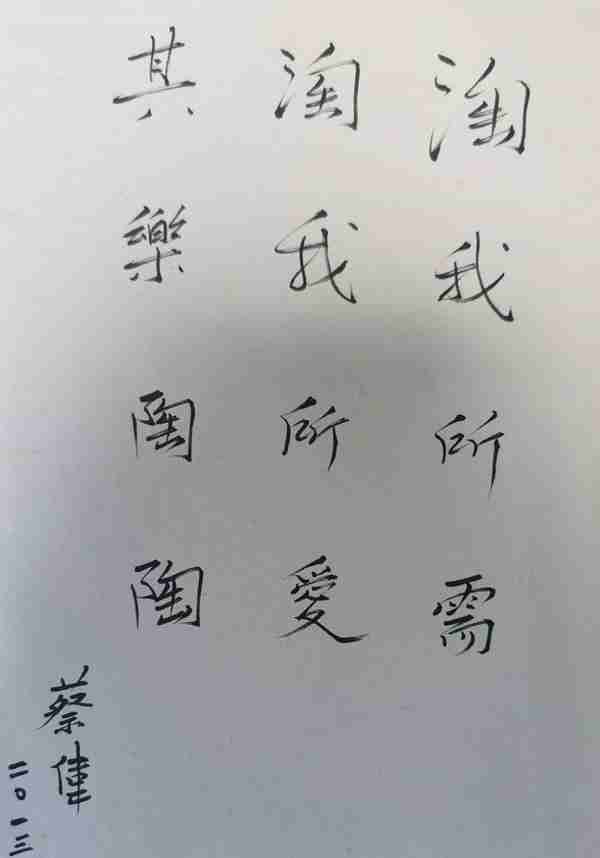 淘我所需
淘我所愛
其樂陶陶
蔡偉
二〇一三